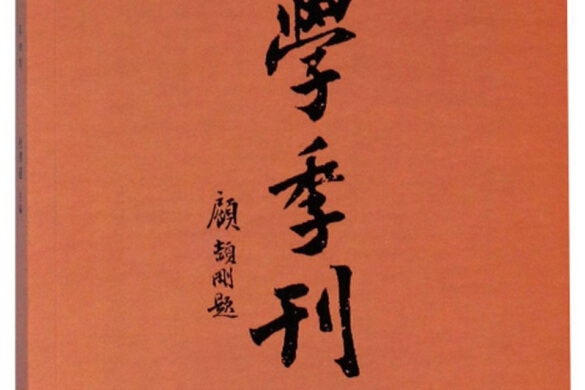 學季刊
顧頡剛題